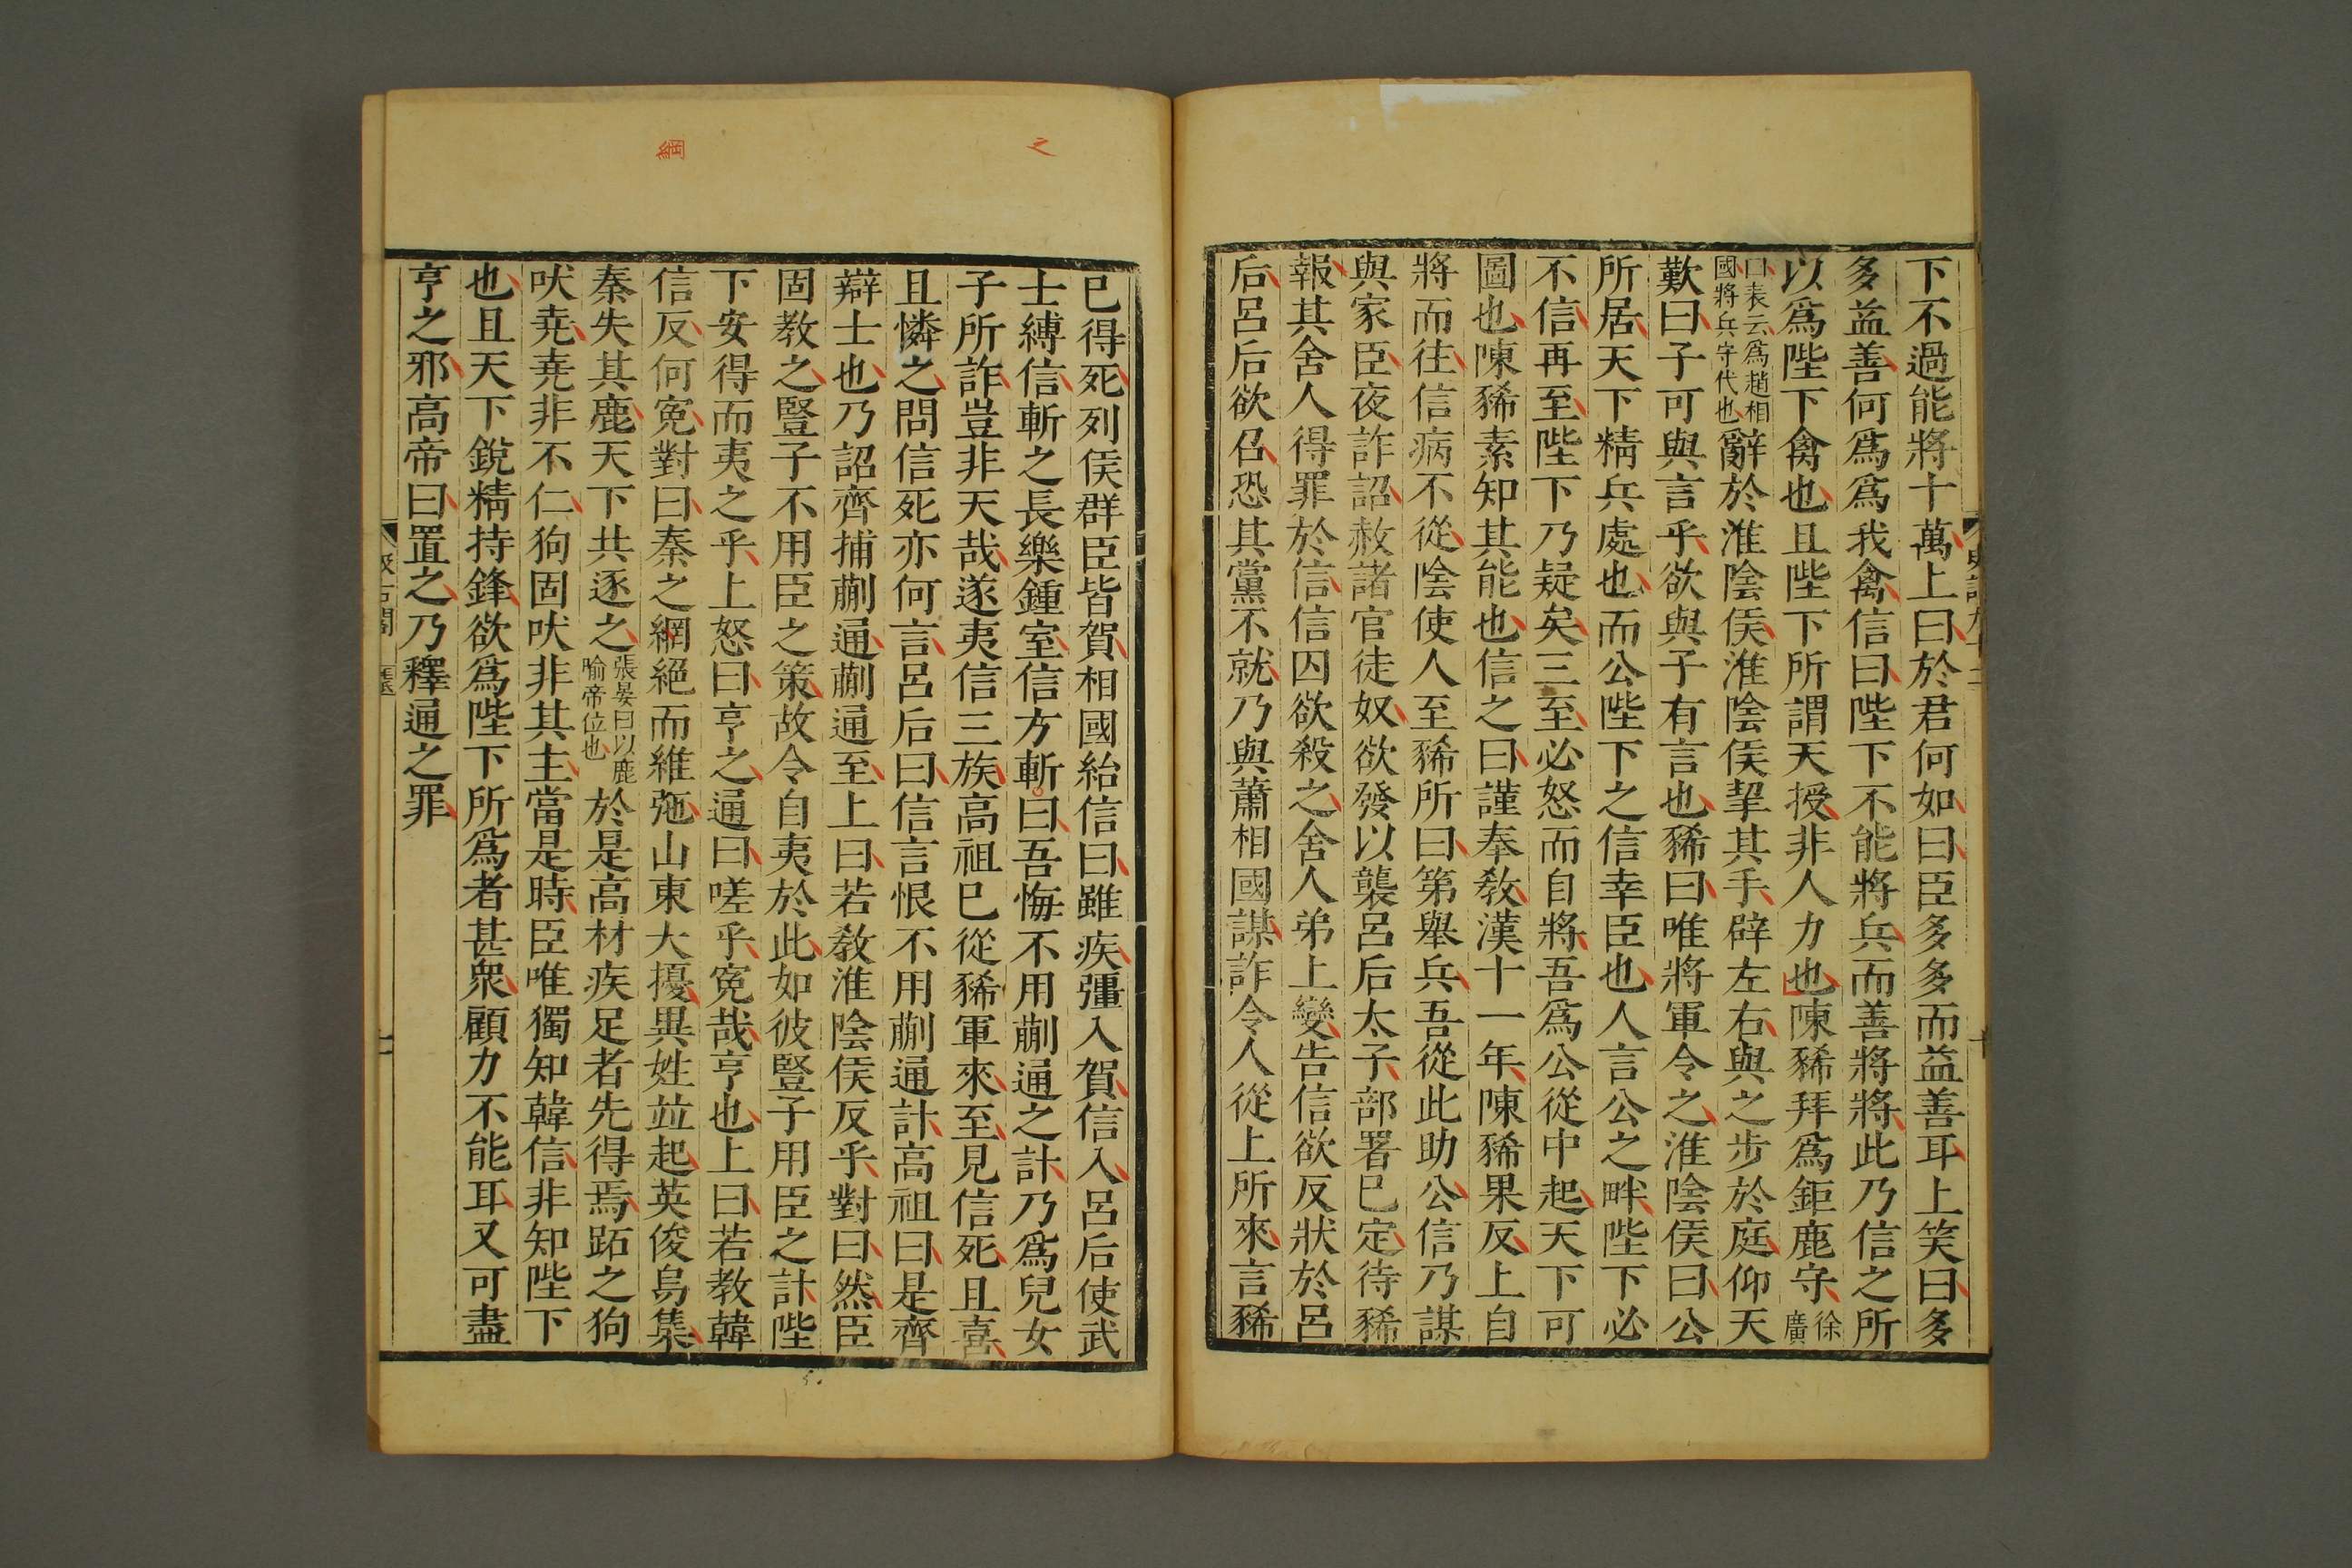 下不過能將十萬上曰於君何如曰臣多多而益善耳上笑曰多
多益善何爲爲我禽信曰陛下不能將兵而善將將此乃信之所
以爲陛下禽也且陛下所謂天授非人力也陳豨拜爲鉅鹿守徐廣
曰表云爲趙相國將兵守代也辭於淮陰侯淮陰侯挈其手辟左右與之步於庭仰天
歎曰子可與言乎欲與子有言也豨曰唯將軍令之淮陰侯曰公
所居天下精兵處也而公陛下之信幸臣也人言公之畔陛下必
不信再至陛下乃疑矣三至必怒而自將吾爲公從中起天下可
圖也陳豨素知其能也信之曰謹奉教漢十一年陳豨果反上自
將而往信病不從陰使人至豨所曰第舉兵吾從此助公信乃謀
與家臣夜詐詔赦諸官徒奴欲發以襲呂后太子部署已定待豨
報其舍人得罪於信信囚欲殺之舍人弟上變告信欲反狀於呂
后呂后欲召恐其黨不就乃與蕭相國謀詐令人從上所來言豨
已得死列侯群臣皆賀相國紿信曰雖疾彊入賀信入呂后使武
士縛信斬之長樂鍾室信方斬曰吾悔不用蒯通之計乃爲兒女
子所詐豈非天哉遂夷信三族高祖已從豨軍來至見信死且喜
且憐之問信死亦何言呂后曰信言恨不用蒯通計高祖曰是齊
辯士也乃詔齊捕蒯通蒯通至上曰若教淮陰侯反乎對曰然臣
固教之豎子不用臣之策故令自夷於此如彼豎子用臣之計陛
下安得而夷之乎上怒曰亨之通曰嗟乎寃哉亨也上曰若教韓
信反何寃對曰秦之網絕而維弛山東大擾異姓並起英俊烏集
秦失其鹿天下共逐之張晏曰以鹿喻帝位也於是高材疾足者先得焉跖之狗
吠堯堯非不仁狗固吠非其主當是時臣唯獨知韓信非知陛下
也且天下銳精持鋒欲爲陛下所爲者甚衆顧力不能耳又可盡
亨之邪高帝曰置之乃釋通之罪
之